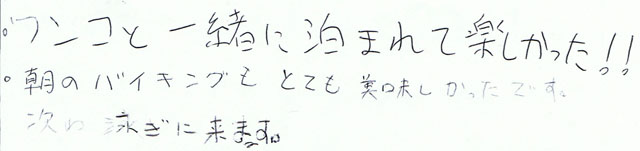 。ワンコと一緒に泊まれて楽しかった!!
。朝のバイキングもとても美味しかったです。
次は泳ぎに来ます。